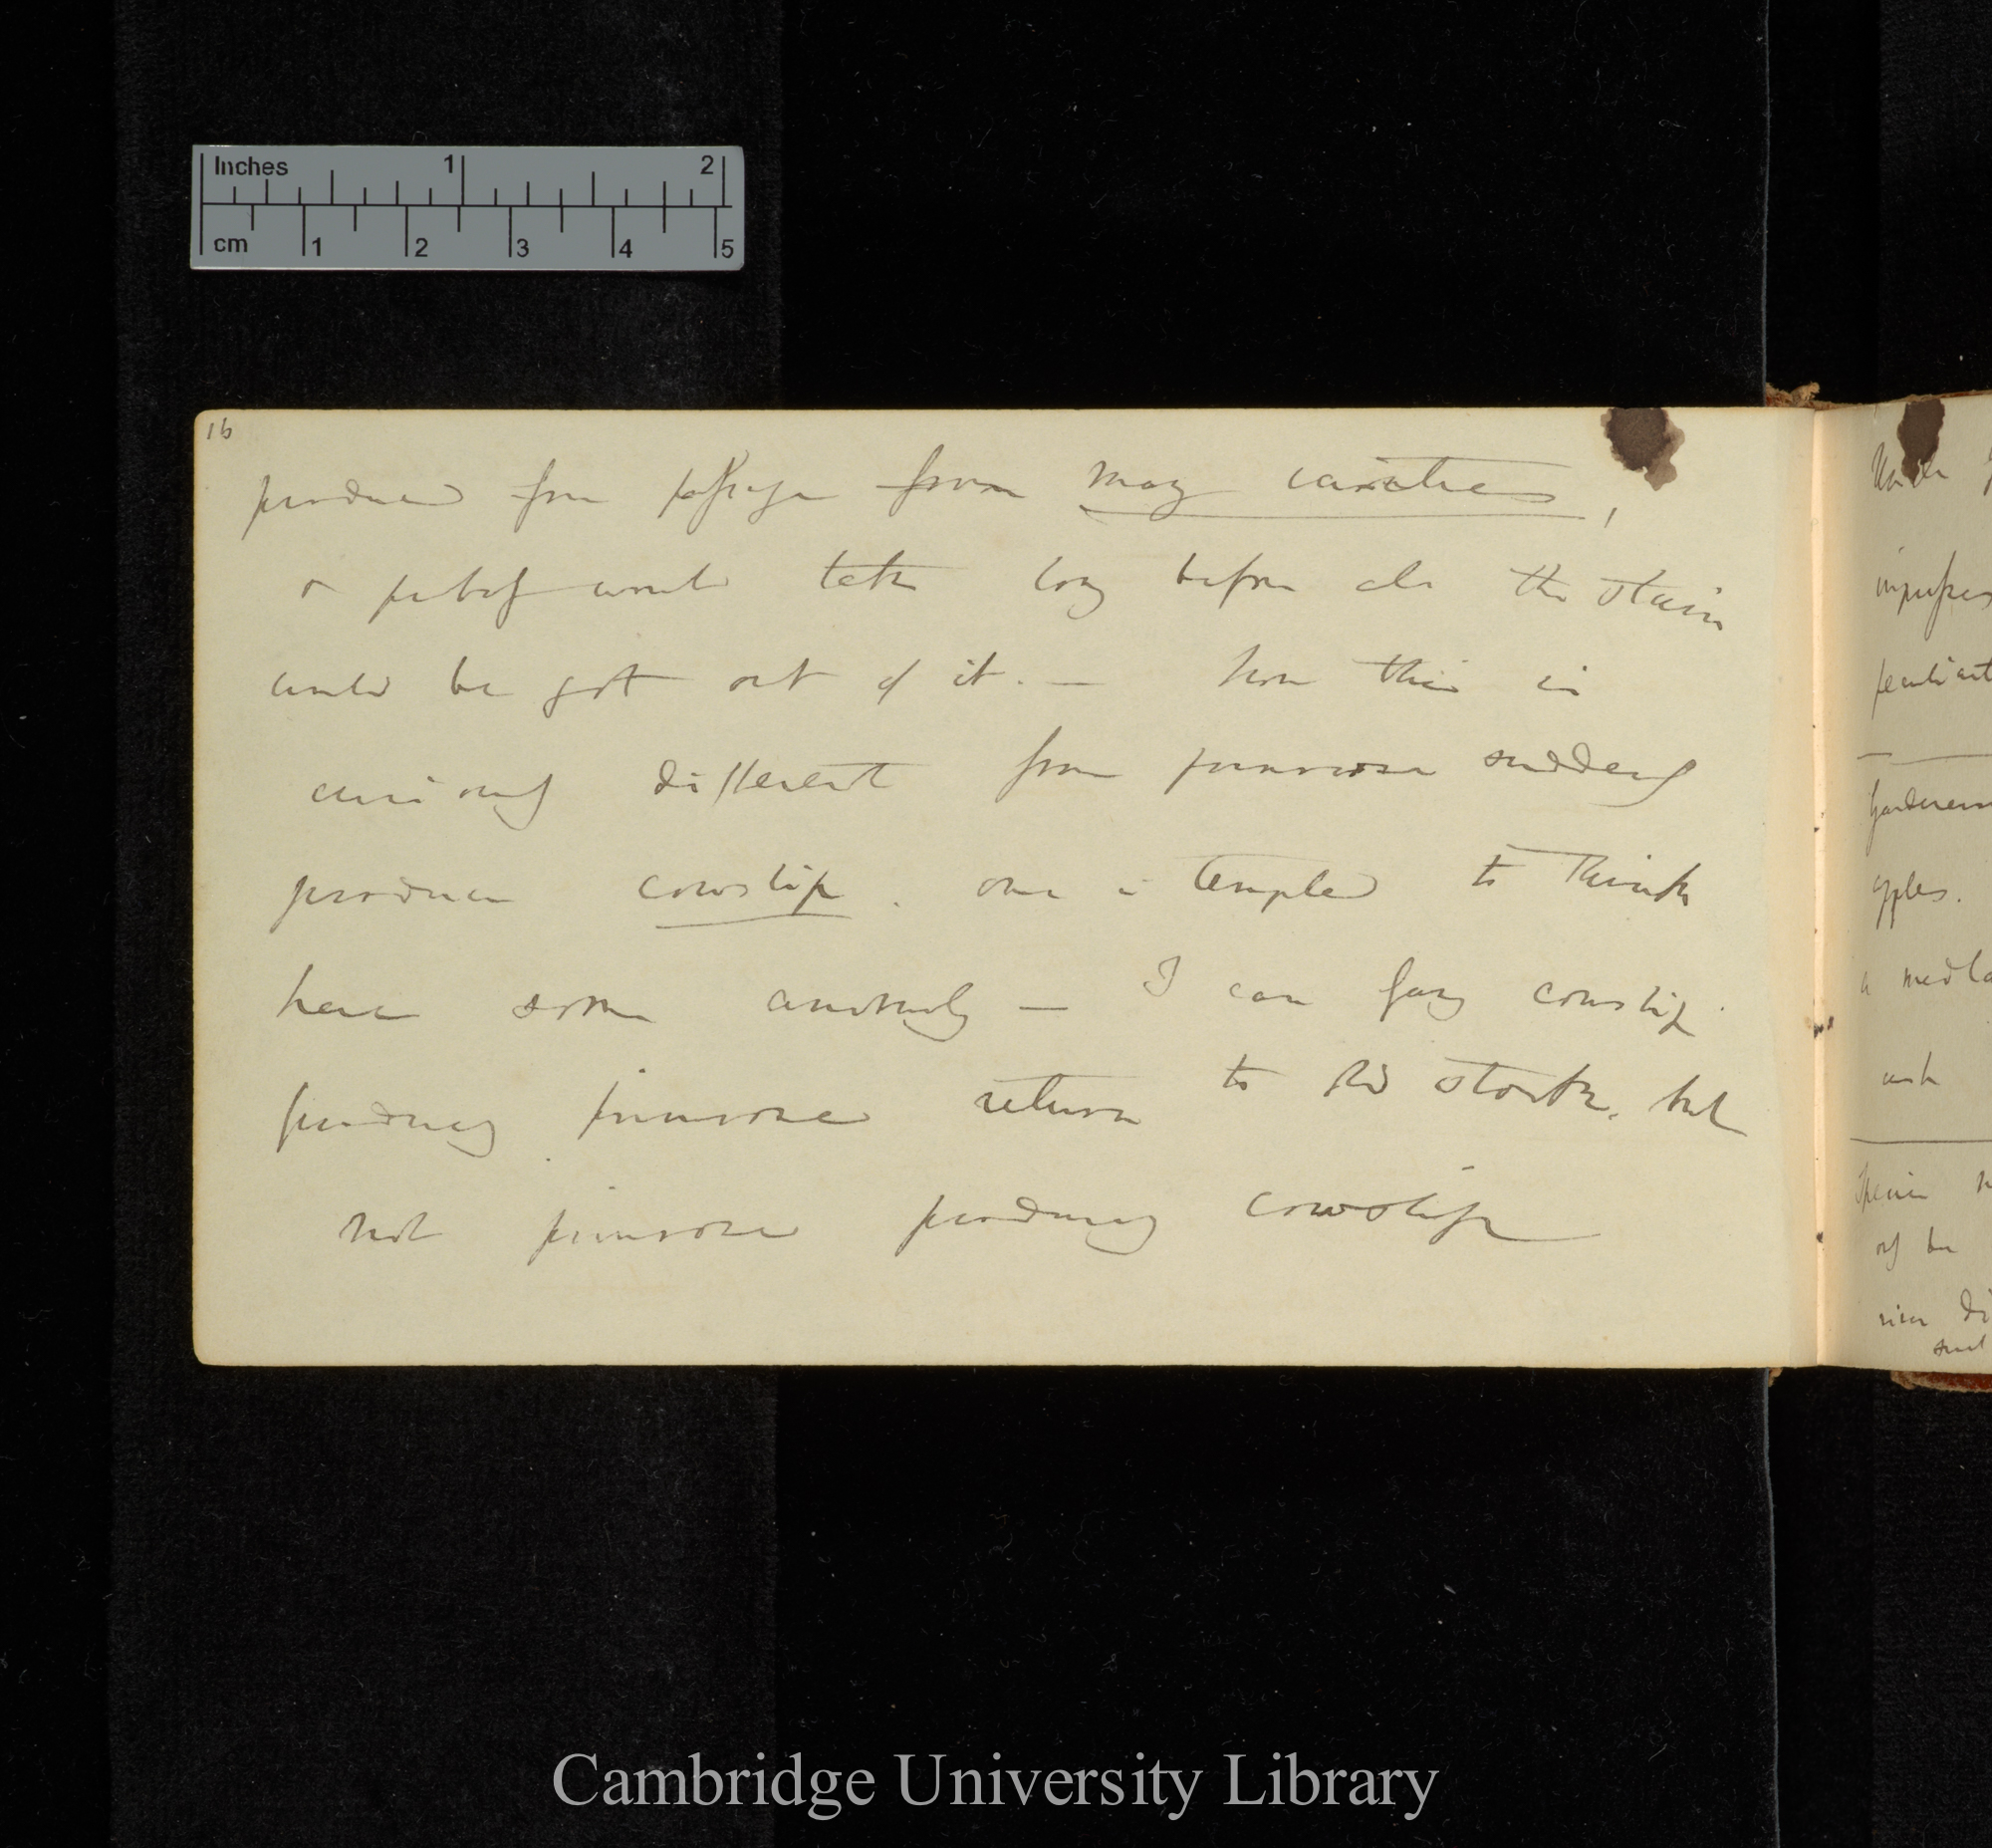 Inches 1 2
cm 1 2 3 4 5
16
produced from passage from many varieties,
& probably would take long before all the stain
could be got out of it. — how this is
curiously different from primrose suddenly
produce cowslip. one is tempted to think
here some anomaly — I can fancy cowslip.
producing primrose return to old stock. but
not primrose producing cowslip
Under
impress
peculiarit
Gardeners
apples.
a medla
ask
Species
only be
Cambridge University Library